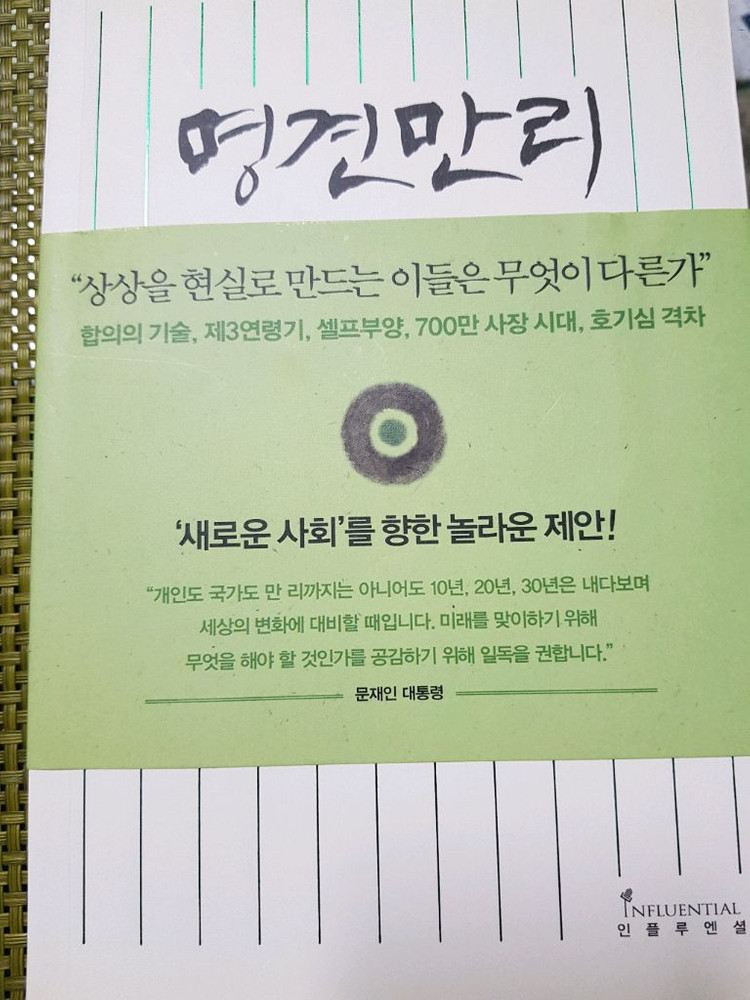 명견만리
“상상을 현실로 만드는 이들은 무엇이 다른가”
합의의 기술, 제3연령기, 셀프부양, 700만 사장 시대, 호기심 격차
‘새로운 사회’를 향한 놀라운 제안!
“개인도 국가도 만 리까지는 아니어도 10년, 20년, 30년은 내다보며
세상의 변화에 대비할 때입니다. 미래를 맞이하기 위해
무엇을 해야 할 것인가를 공감하기 위해 일독을 권합니다.”
문재인 대통령
INFLUENTIAL
인플루엔셜